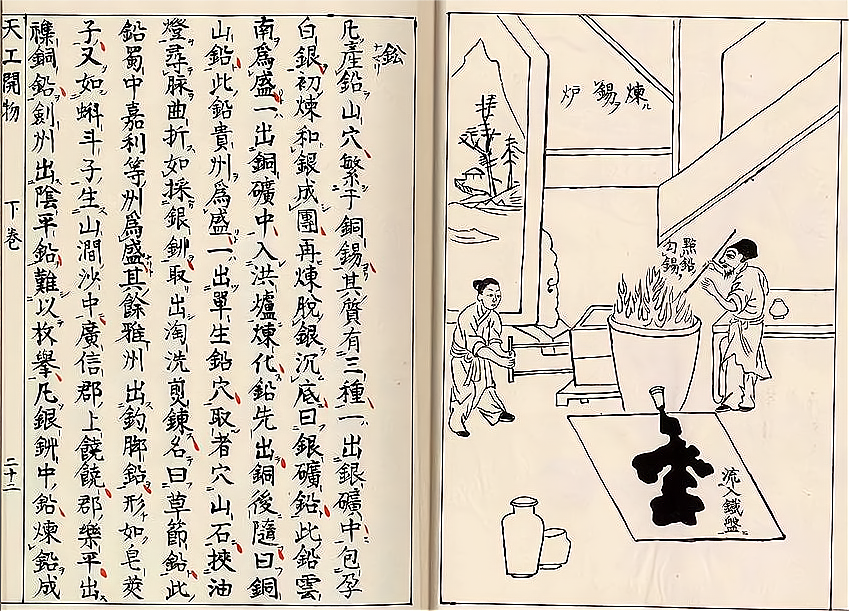 煉錫炉
點鉛
勾錫
流入鐵盤
鈆
凡產鉛山穴繁于銅錫其質有三種一出銀礦中包孕
白銀初煉和銀成團再煉脫銀沉底曰銀礦鉛此鉛雲
南爲盛一出銅礦中入洪爐煉化鉛先出銅後隨曰銅
山鉛此鉛貴州爲盛一出單生鉛穴取者穴山石挾油
燈尋脉曲折如採銀鉚取出淘洗煎鍊名曰草節鉛此
鉛蜀中嘉利等州爲盛其餘雅州出釣脚鉛形如皂莢
子又如蝌斗子生山澗沙中廣信郡上饒饒郡樂平出
襍銅鉛劍州出陰平鉛難以枚舉凡銀鉚中鉛煉鉛成
天工開物 下巻 二十二